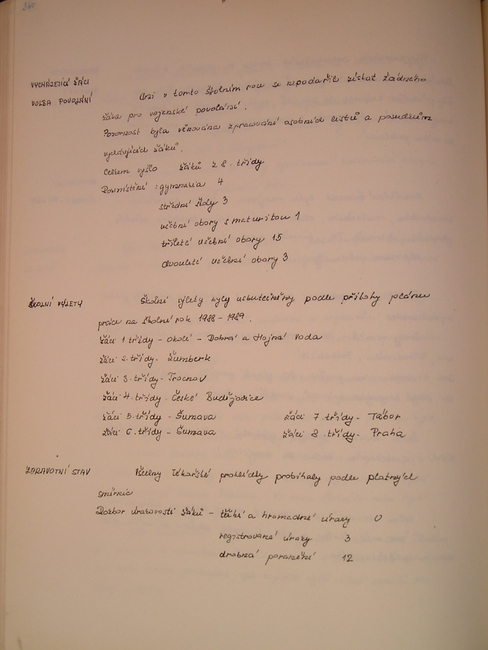 VYCHÁZEJÍCÍ ŽÁCI
VOLBA POVOLÁNÍ
Ani v tomto školním roce se nepodařilo získat žádného
žáka pro vojenské povolání.
Pozornost byla věnována zpracování osobních lístků a posudkům
vycházejících žáků.
Celkem vyšlo žáků z 8. třídy
Rozmístění: gymnasia 4
střední školy 3
učební obory s maturitou 1
tříleté učební obory 15
dvouleté učební obory 3
ŠKOLNÍ VÝLETY
Školní výlety byly uskutečněny podle přílohy plánu
práce na školní rok 1988-1989.
Žáci 1. třídy - Okolí - Dobrá a Hojná Voda
Žáci 2. třídy - Žumberk
Žáci 3. třídy - Trocnov
Žáci 4. třídy - České Budějovice
Žáci 5. třídy - Šumava Žáci 7. třídy - Tábor
Žáci 6. třídy - Šumava Žáci 8. třídy - Praha
ZDRAVOTNÍ STAV
Všechny lékařské prohlídky probíhaly podle platných
směrnic
Rozbor úrazovosti žáků - těžké a hromadné úrazy 0
registrované úrazy 3
drobná poranění 12